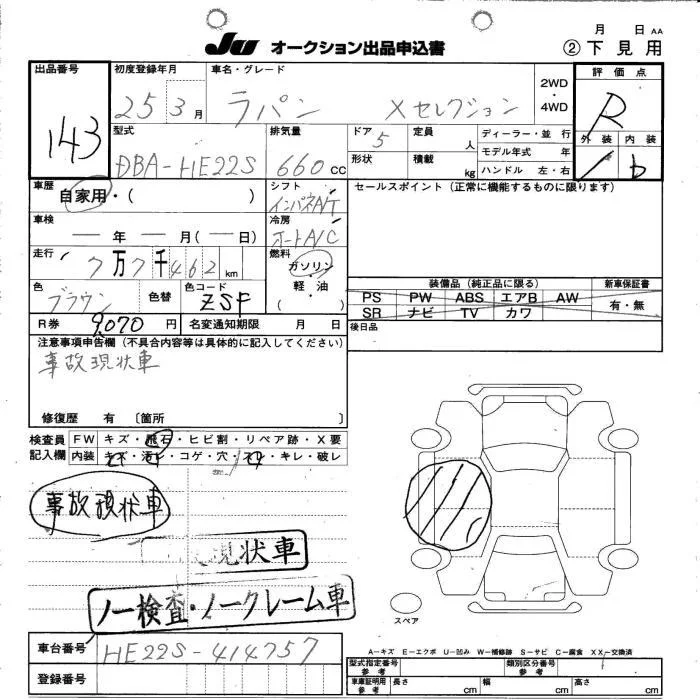 月 日 AA
JU オークション出品申込書 ② 下見用
出品番号 初度登録年月 車名・グレード 2WD・4WD 評価点
143 25 3月 ラパン Xセレクション R
型式 排気量 ドア 定員 人 ディーラー・並 行 外装 内装
DBA-HE22S 660cc 5 形状 積載 kg モデル年式 年 b
ハンドル 左・右
車歴 シフト セールスポイント (正常に機能するものに限ります)
自家用・( ) インパネA/T
車検 冷房
― 年 ― 月(― 日) オートA/C
走行 燃料
7万7千462km ガソリン・軽油・( )
色 色替 色コード 装備品 (純正品に限る) 新車保証書
ブラウン ZSF PS PW ABS エアB AW 有・無
SR ナビ TV カワ
R券 9,070円 名変通知期限 月 日 後日品
注意事項申告欄 (不具合内容等は具体的に記入してください)
事故現状車
修復歴 有 〔箇所 〕
検査員 FW キズ・飛石・ヒビ割・リペア跡・X要
記入欄 内装 キズ・汚レ・コゲ・穴・スレ・キレ・破レ
事故現状車
現状車
ノー検査・ノークレーム車
スペア
車台番号 HE22S-414757
A-キズ E-エクボ U-凹み W-補修跡 S-サビ C-腐食 XX-交換済
登録番号 型式指定番号 参考 類別区分番号 参考
車庫証明用 参考 長さ cm 幅 cm 高さ cm